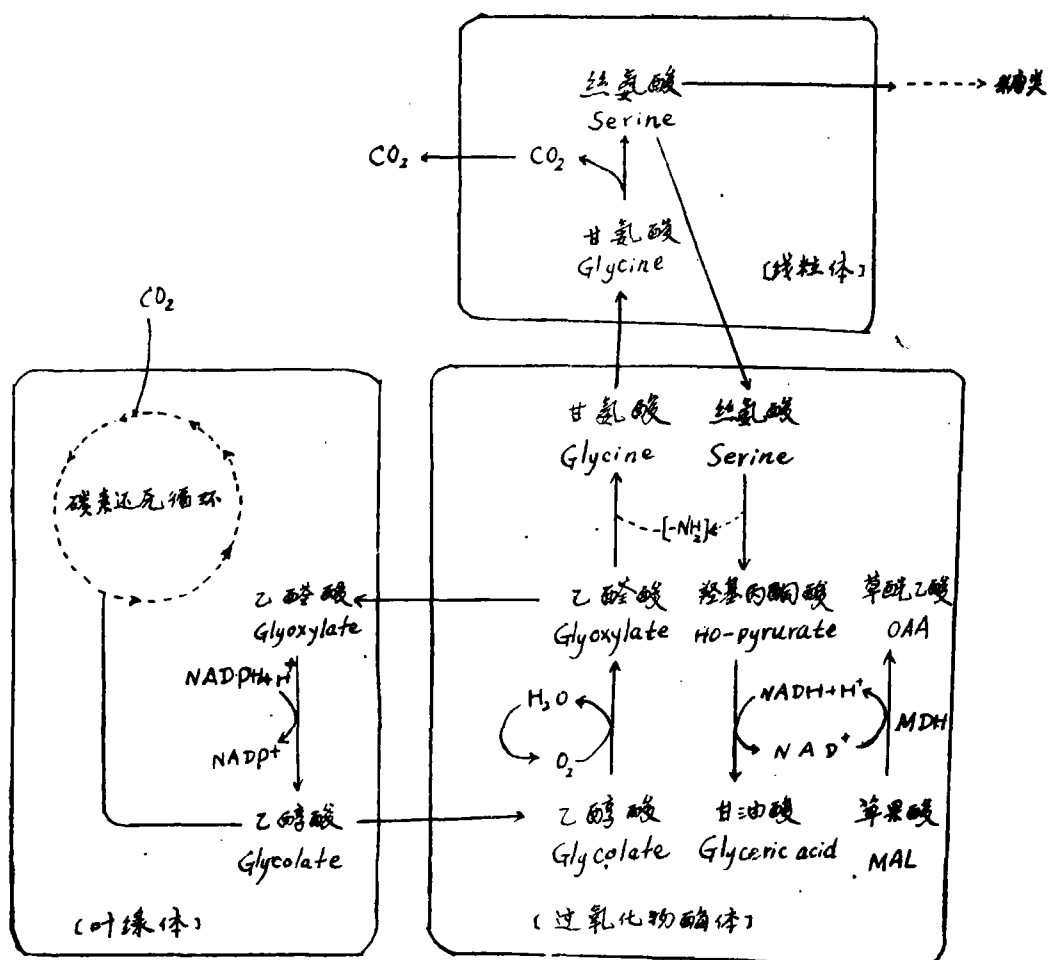 丝氨酸
Serine
糖类
CO₂
CO₂
甘氨酸
Glycine
[线粒体]
CO₂
碳素还原循环
乙醛酸
Glyoxylate
NADPH+H⁺
NADP+
乙醇酸
Glycolate
[叶绿体]
甘氨酸
Glycine
丝氨酸
Serine
[-NH₂]
乙醛酸
Glyoxylate
羟基丙酮酸
HO-pyrurate
草酰乙酸
OAA
H₂O
O₂
NADH+H⁺
NAD⁺
MDH
乙醇酸
Glycolate
甘油酸
Glyceric acid
苹果酸
MAL
[过氧化物酶体]